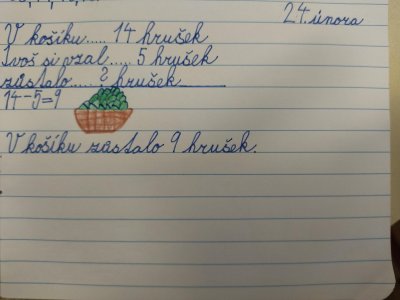 24. února
V košíku..... 14 hrušek
Ivoš si vzal..... 5 hrušek
zůstalo..... ? hrušek
14-5=9
V košíku zůstalo 9 hrušek.